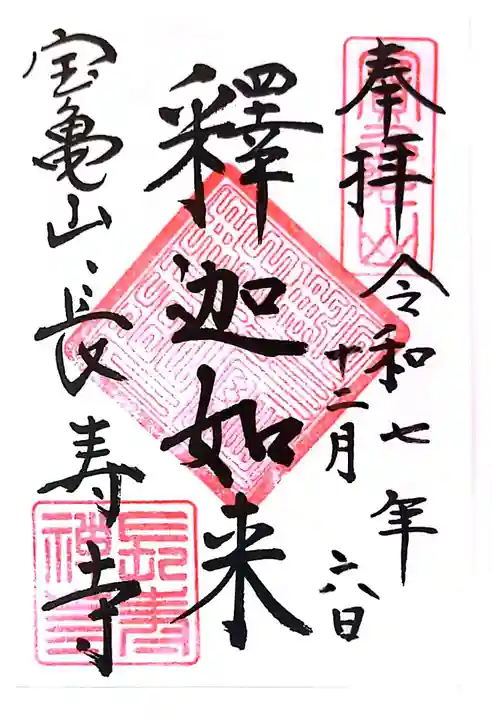 奉拝
令和七年
十二月六日
釋迦如来
宝亀山長寿寺
寶亀山
長壽
禅寺